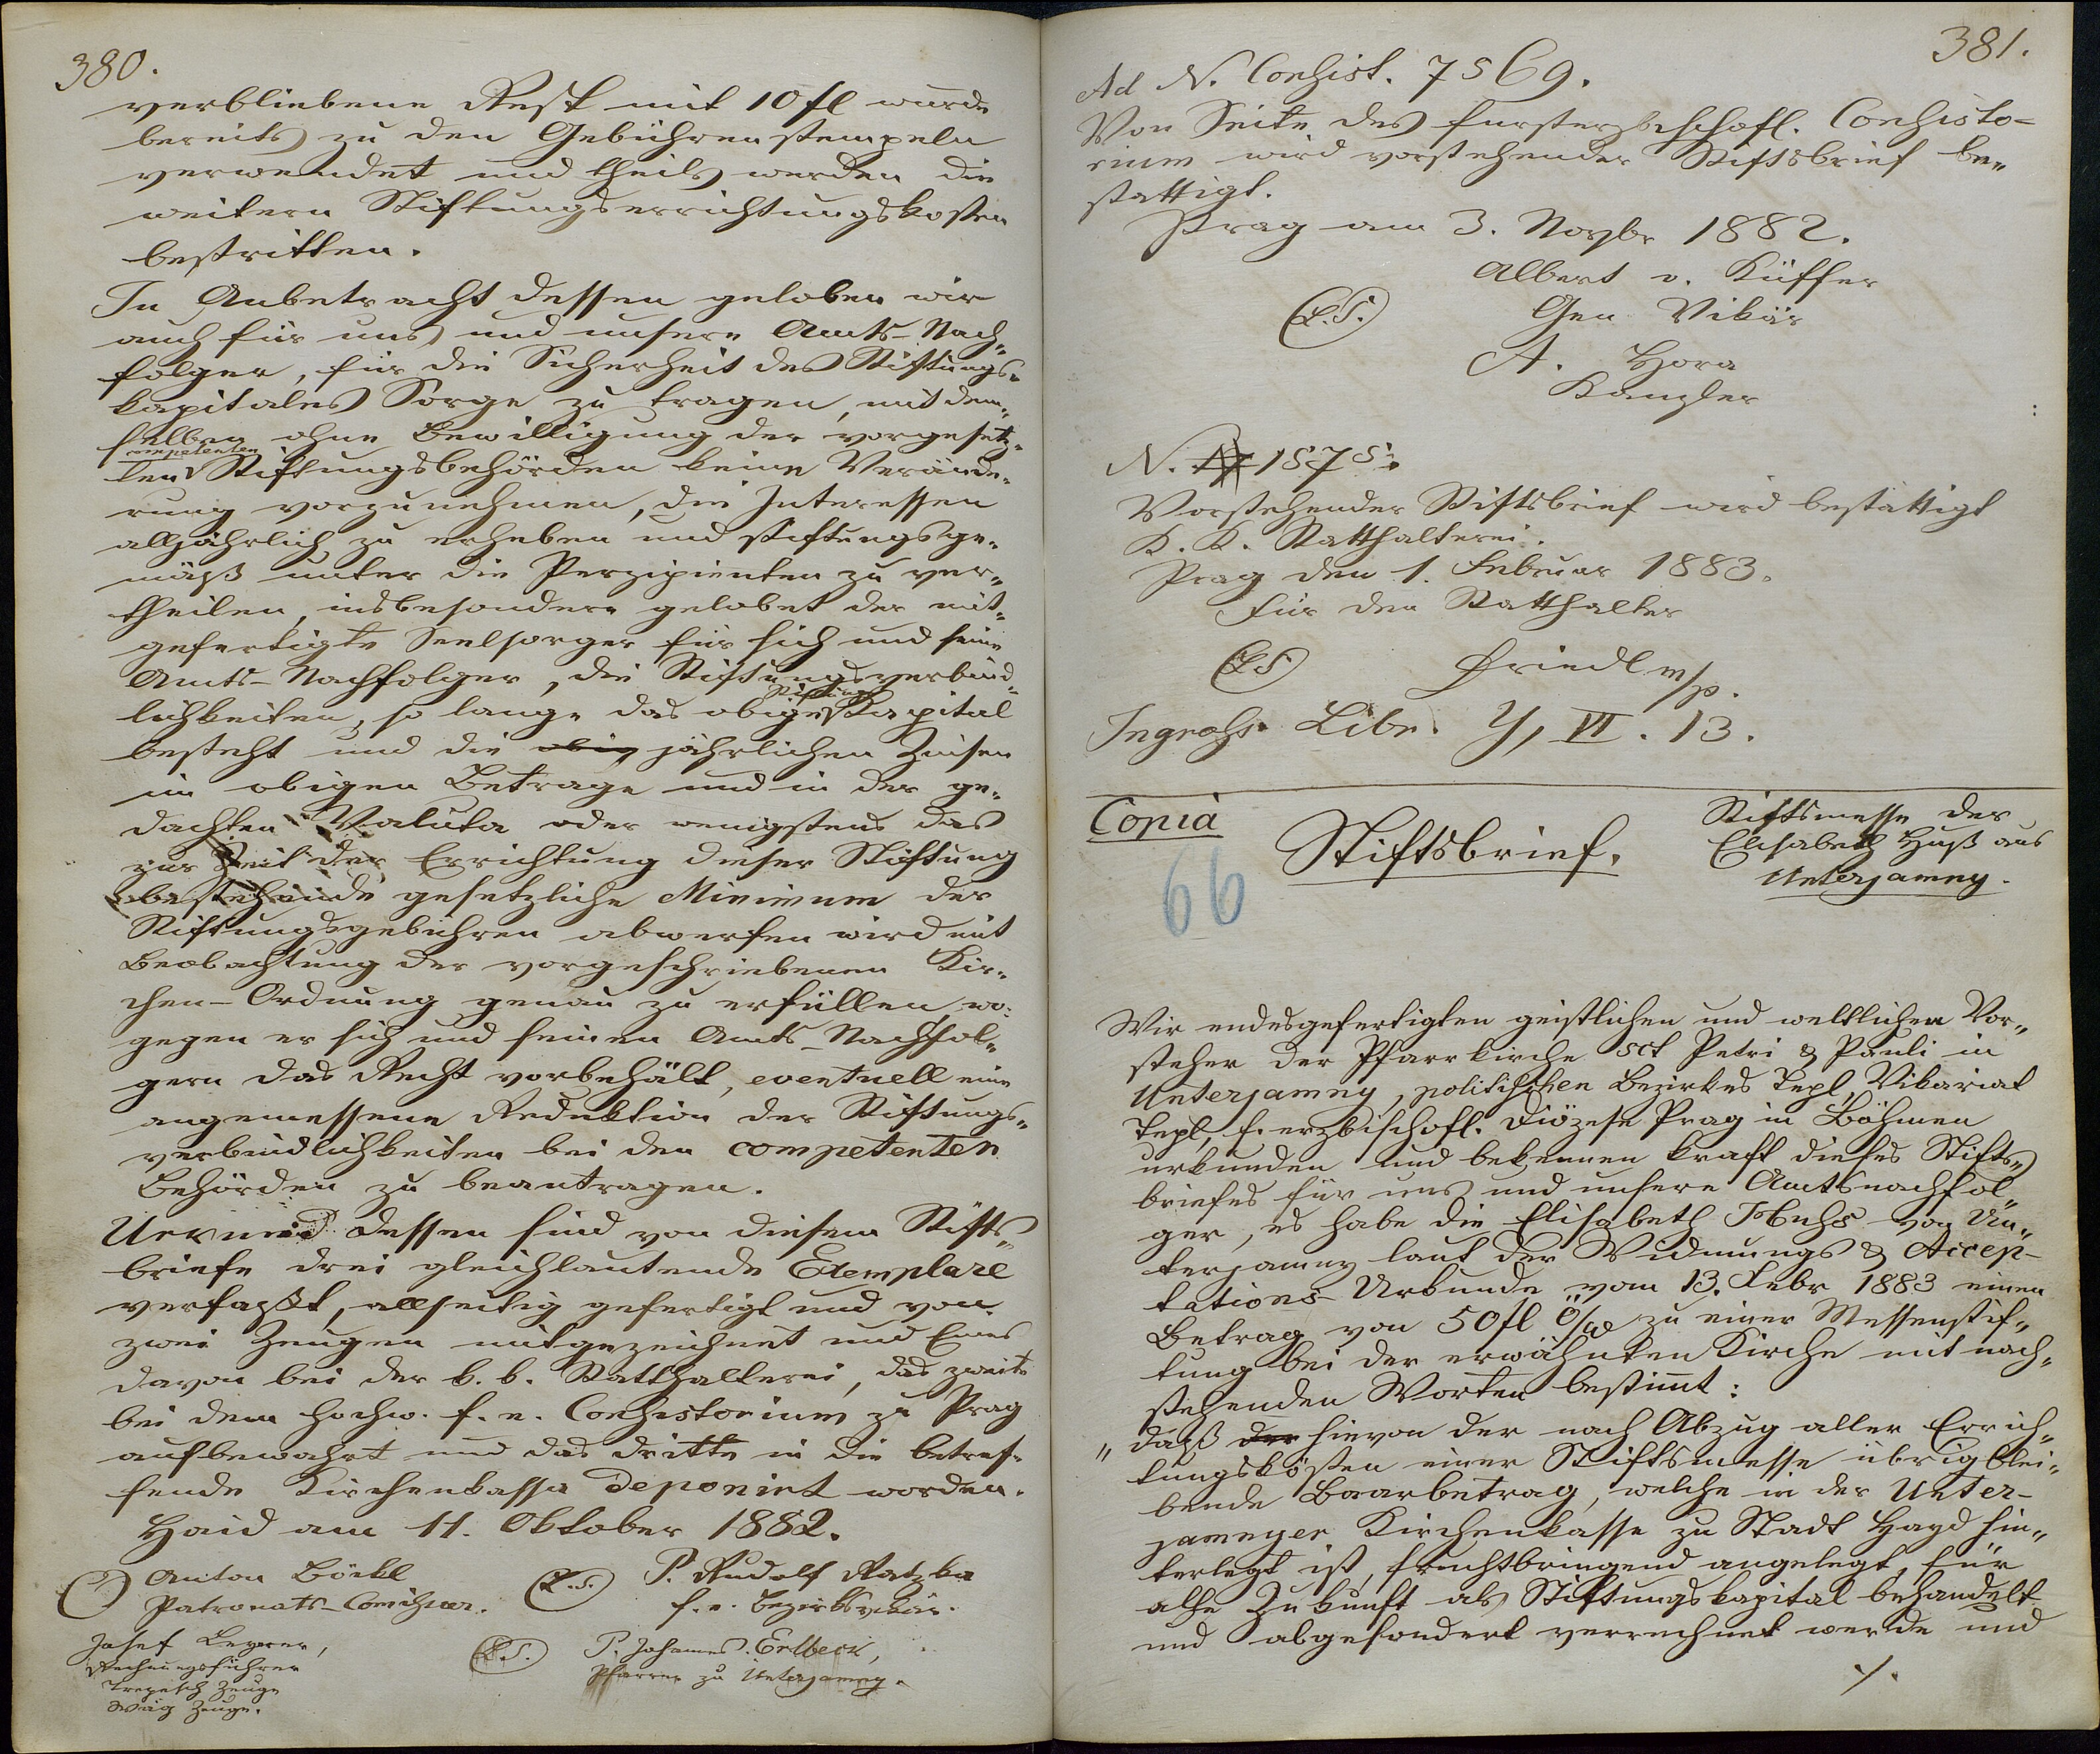 380.
verbliebene Rest mit 10 fl wurde
bereits zu den Gebührenstempeln
verwendet und theils werden die
weitern Stiftungserrichtungskosten
bestritten.
In Anbetracht dessen geloben wir
auch für uns und unsere Amts-Nach„
folger, für die Sicherheit des Stiftungs„
kapitales Sorge zu tragen, mit dem„
selben ohne Bewilligung der vorgesetz„
competenten
ten Stiftungsbehörden keine Verände„
rung vorzunehmen, die Interessen
alljährlich zu erheben und stiftungsge„
mäß unter die Perzipienten zu ver„
theilen, insbesondere gelobet der mit„
gefertigte Seelsorger für sich und seine
Amts-Nachfolger, die Stiftungsverbind„
Stiftungs
lichkeiten, so lange das obige Kapital
besteht und die obig jährlichen Zinsen
im obigen Betrage und in der ge„
dachten Valuta oder wenigstens das
zur Zeit der Errichtung dieser Stiftung
bestehende gesetzliche Minimum der
Stiftungsgebühren abwerfen wird mit
Beobachtung der vorgeschriebenen Kir„
chen-Ordnung genau zu erfüllen, wo„
gegen er sich und seinen Amts-Nachfol„
gern das Recht vorbehält, eventuell eine
angemessene Reduktion der Stiftungs„
verbindlichkeiten bei den competenten
Behörden zu beantragen.
Urkund dessen sind von diesem Stifts„
briefe drei gleichlautende Exemplare
verfaßt, allseitig gefertigt und von
zwei Zeugen mitgezeichnet und Eines
davon bei der k. k. Statthalterei, das zweite
bei dem hochw. f. e. Consistorium zu Prag
aufbewahrt und das dritte in die betref„
fende Kirchenkassa deponirt worden.
Haid am 11. Oktober 1882.
Anton Böckl
Patronats-Comißär.
L.S. P. Rudolf Ratzka
f. e. Bezirksvikär.
Josef
Rechnungsführer
Zeuge
Zeuge.
L.S. P. Johannes Erlbeck,
Pfarrer zu Unterjamny.
381.
Ad N. Consist. 7569.
Von Seite des fursterzbischofl. Consisto-
rium wird vorstehender Stiftsbrief be„
stattigt.
Prag am 3. Novbr 1882.
Albert v. Küffer
L.S. Gen Vikär
A. Hora
Kanzler
N. 1875.
Vorstehender Stiftsbrief wird bestättigt
K. K. Statthalterei.
Prag den 1. Februar 1883.
Für den Statthalter
L.S. Friedl m/p.
Ingross. Libr. Y, VI. 13.
Copia
66
Stiftsbrief.
Stiftsmesse der
Elisabeth Huß aus
Unterjamny.
Wir endesgefertigten geistlichen und weltlichen Vor„
steher der Pfarrkirche sct Petri & Pauli in
Unterjamny, politischen Bezirkes Tepl, Vikariat
Tepl, f. erzbischofl. Diözese Prag in Böhmen
urkunden und bekennen kraft dieses Stifts„
briefes für uns und unsere Amtsnachfol„
ger, es habe die Elisabeth Huhs von Un„
terjamny laut der Widmungs & Accep-
tations-Urkunde vom 13. Febr 1883 einen
Betrag von 50 fl ö/W zu einer Messenstif„
tung bei der erwähnten Kirche mit nach„
stehenden Worten bestimt:
„daß der hievon der nach Abzug aller Errich„
tungskosten einer Stiftsmesse übrigblei„
bende Baarbetrag, welche in der Unter-
jamnyer Kirchenkasse zu Stadt Hayd hin„
terlegt ist, fruchtbringend angelegt, für
alle Zukunft als Stiftungskapital behandelt
und abgesondert verrechnet werde und
./.